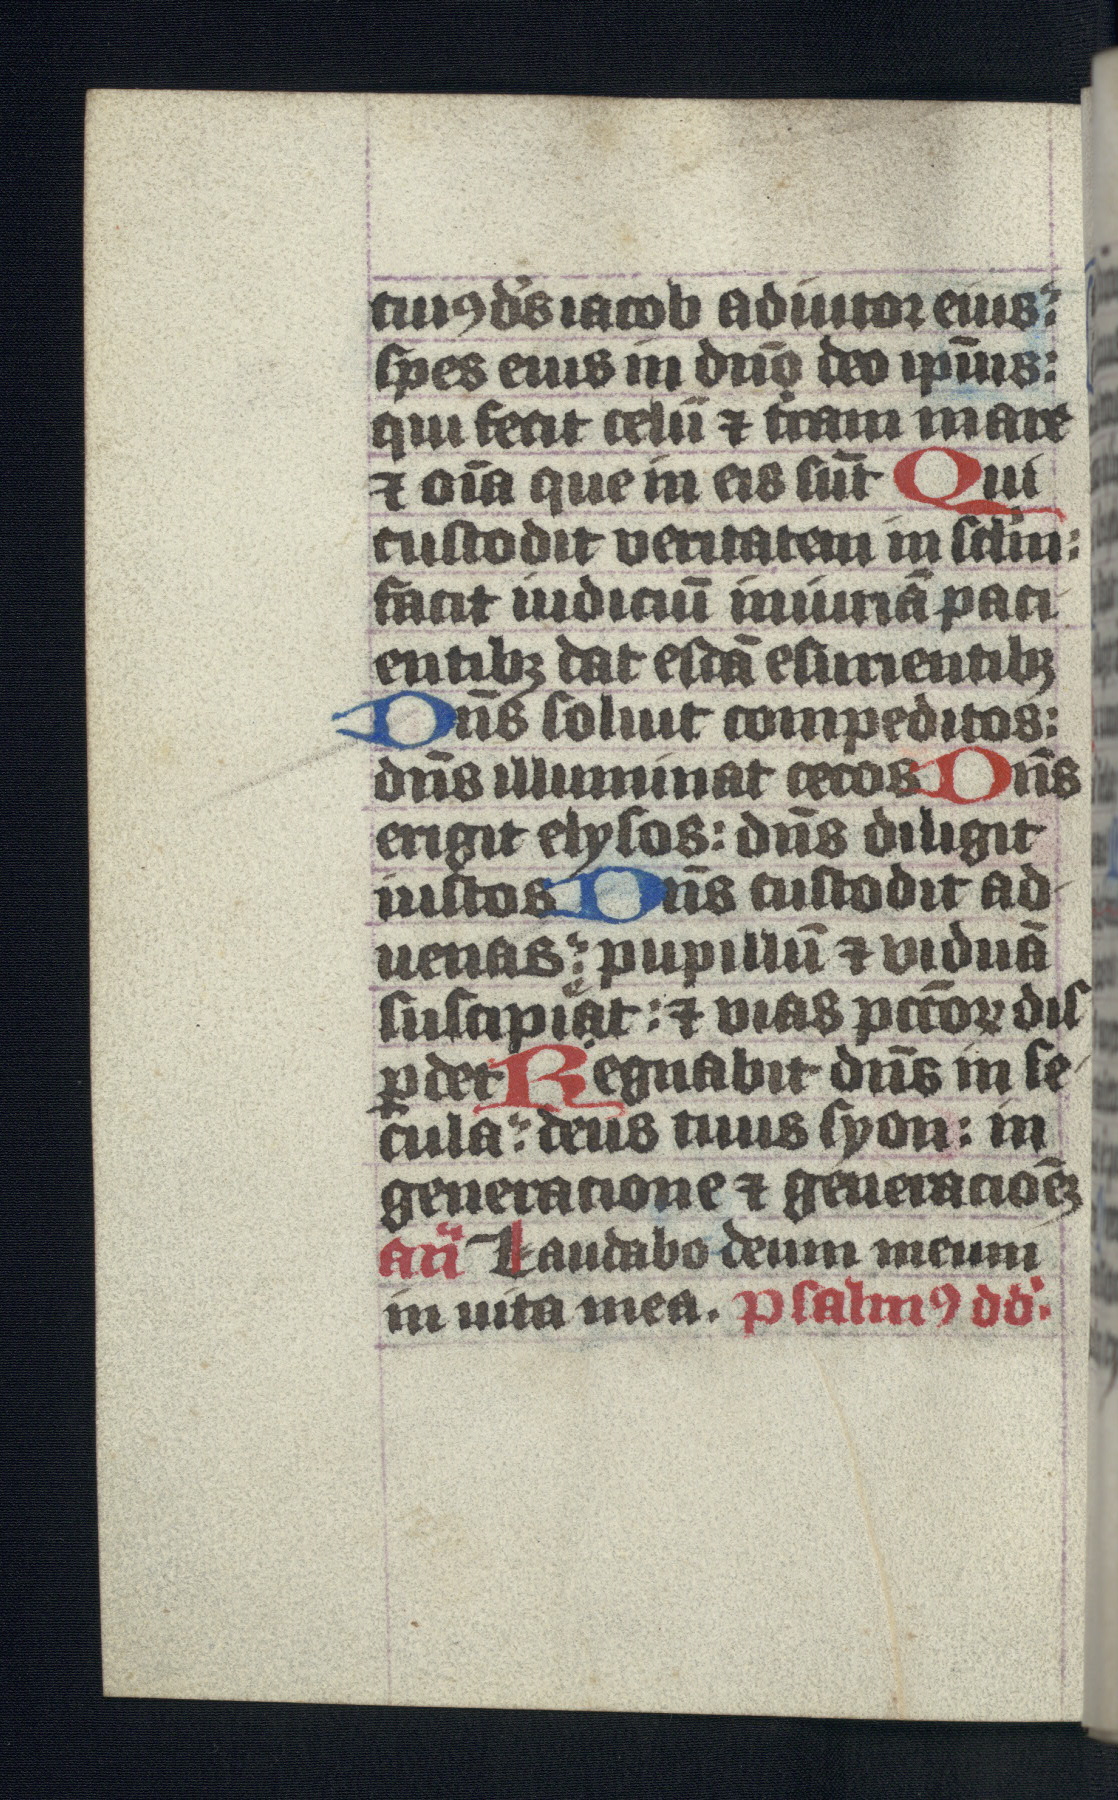 cuiꝰ dˢs iacob adiutor eius:
spes eius in dn̄o deo ip̄ius:
qui fecit celū ⁊ trā̄m mare
⁊ oīa que in eis sūt Qui
custodit veritatem in sclm̄:
facit iudiciū iniuriā paci
entibꝫ dat escā esurientibꝫ
Dn̄s soluit compeditos:
dn̄s illuminat cecos Dn̄s
erigit elysos: dn̄s diligit
iustos Dn̄s custodit ad-
uenas: pupillū ⁊ viduā
suscipiet: ⁊ vias pccōꝝ dis
ꝑdet Regnabit dn̄s in se
cula: deus tuus syon: in
generacione ⁊ generacioēꝫ
an̄ Laudabo deum meum
in uita mea. Psalmꝰ dd.